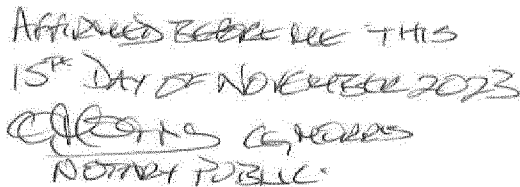 AFFIRMED BEFORE ME THIS
15TH DAY OF NOVEMBER 2023
CG MORRIS
NOTARY PUBLIC.